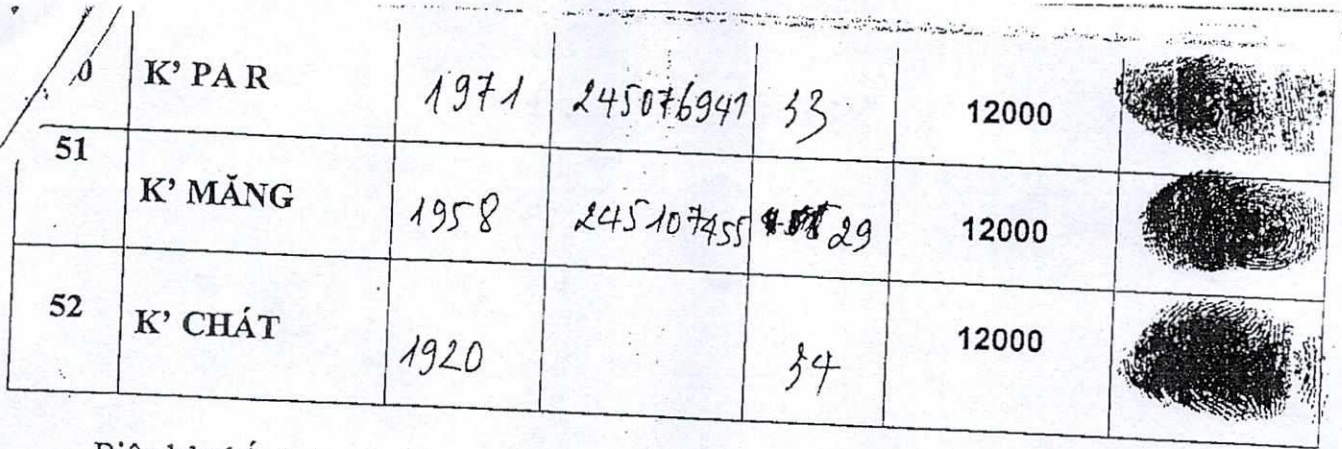 0 K' PA R 1971 245076941 33 12000
51 K' MĂNG 1958 245107455 29 12000
52 K' CHÁT 1920 34 12000